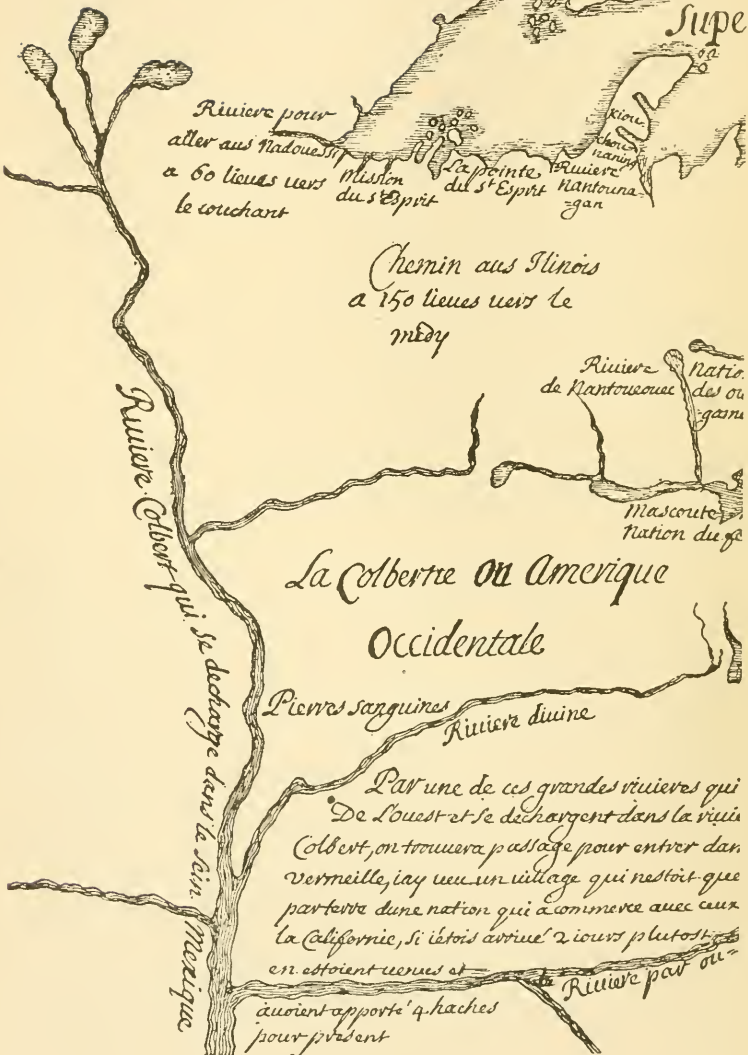 Supe
Riviere pour
aller aus Nadouessi
a 60 lieues vers
le couchant
Mission
du st Esprit
La pointe
du st Esprit
Riviere
Nantouna
=gan
Kiou
chou
naning
Chemin aus Ilinois
a 150 lieues vers le
midy
Riviere
de Nantoueouec
Natio
des ou
=gami
Mascoute
Nation du fe
Riviere Colbert qui se decharge dans le sein Mexique
La Colbertie ou Amerique
Occidentale
Pierres sanguines
Riviere divine
Par une de ces grandes rivieres qui
De L'ouest et se dechargent dans la rivie
Colbert, on trouvera passage pour entrer dan
vermeille, iay veu un village qui nestoit que
par terre dune nation qui a commerce avec ceux
la Californie, si iétois arrivé 2 iours plutost
en estoient venus et
avoient apporté 4 haches
pour present
Riviere par ou=